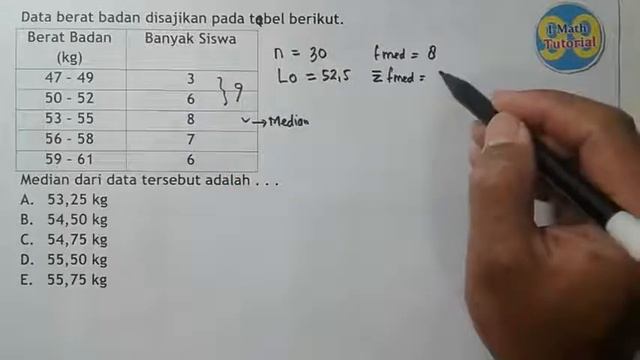 Data berat badan disajikan pada tabel berikut.
Berat Badan (kg) Banyak Siswa
47 - 49 3
50 - 52 6
53 - 55 8
56 - 58 7
59 - 61 6
} 9
→ Median
n = 30 fmed = 8
Lo = 52,5 Σfmed =
Median dari data tersebut adalah . . .
A. 53,25 kg
B. 54,50 kg
C. 54,75 kg
D. 55,50 kg
E. 55,75 kg
1 Math
Tutorial